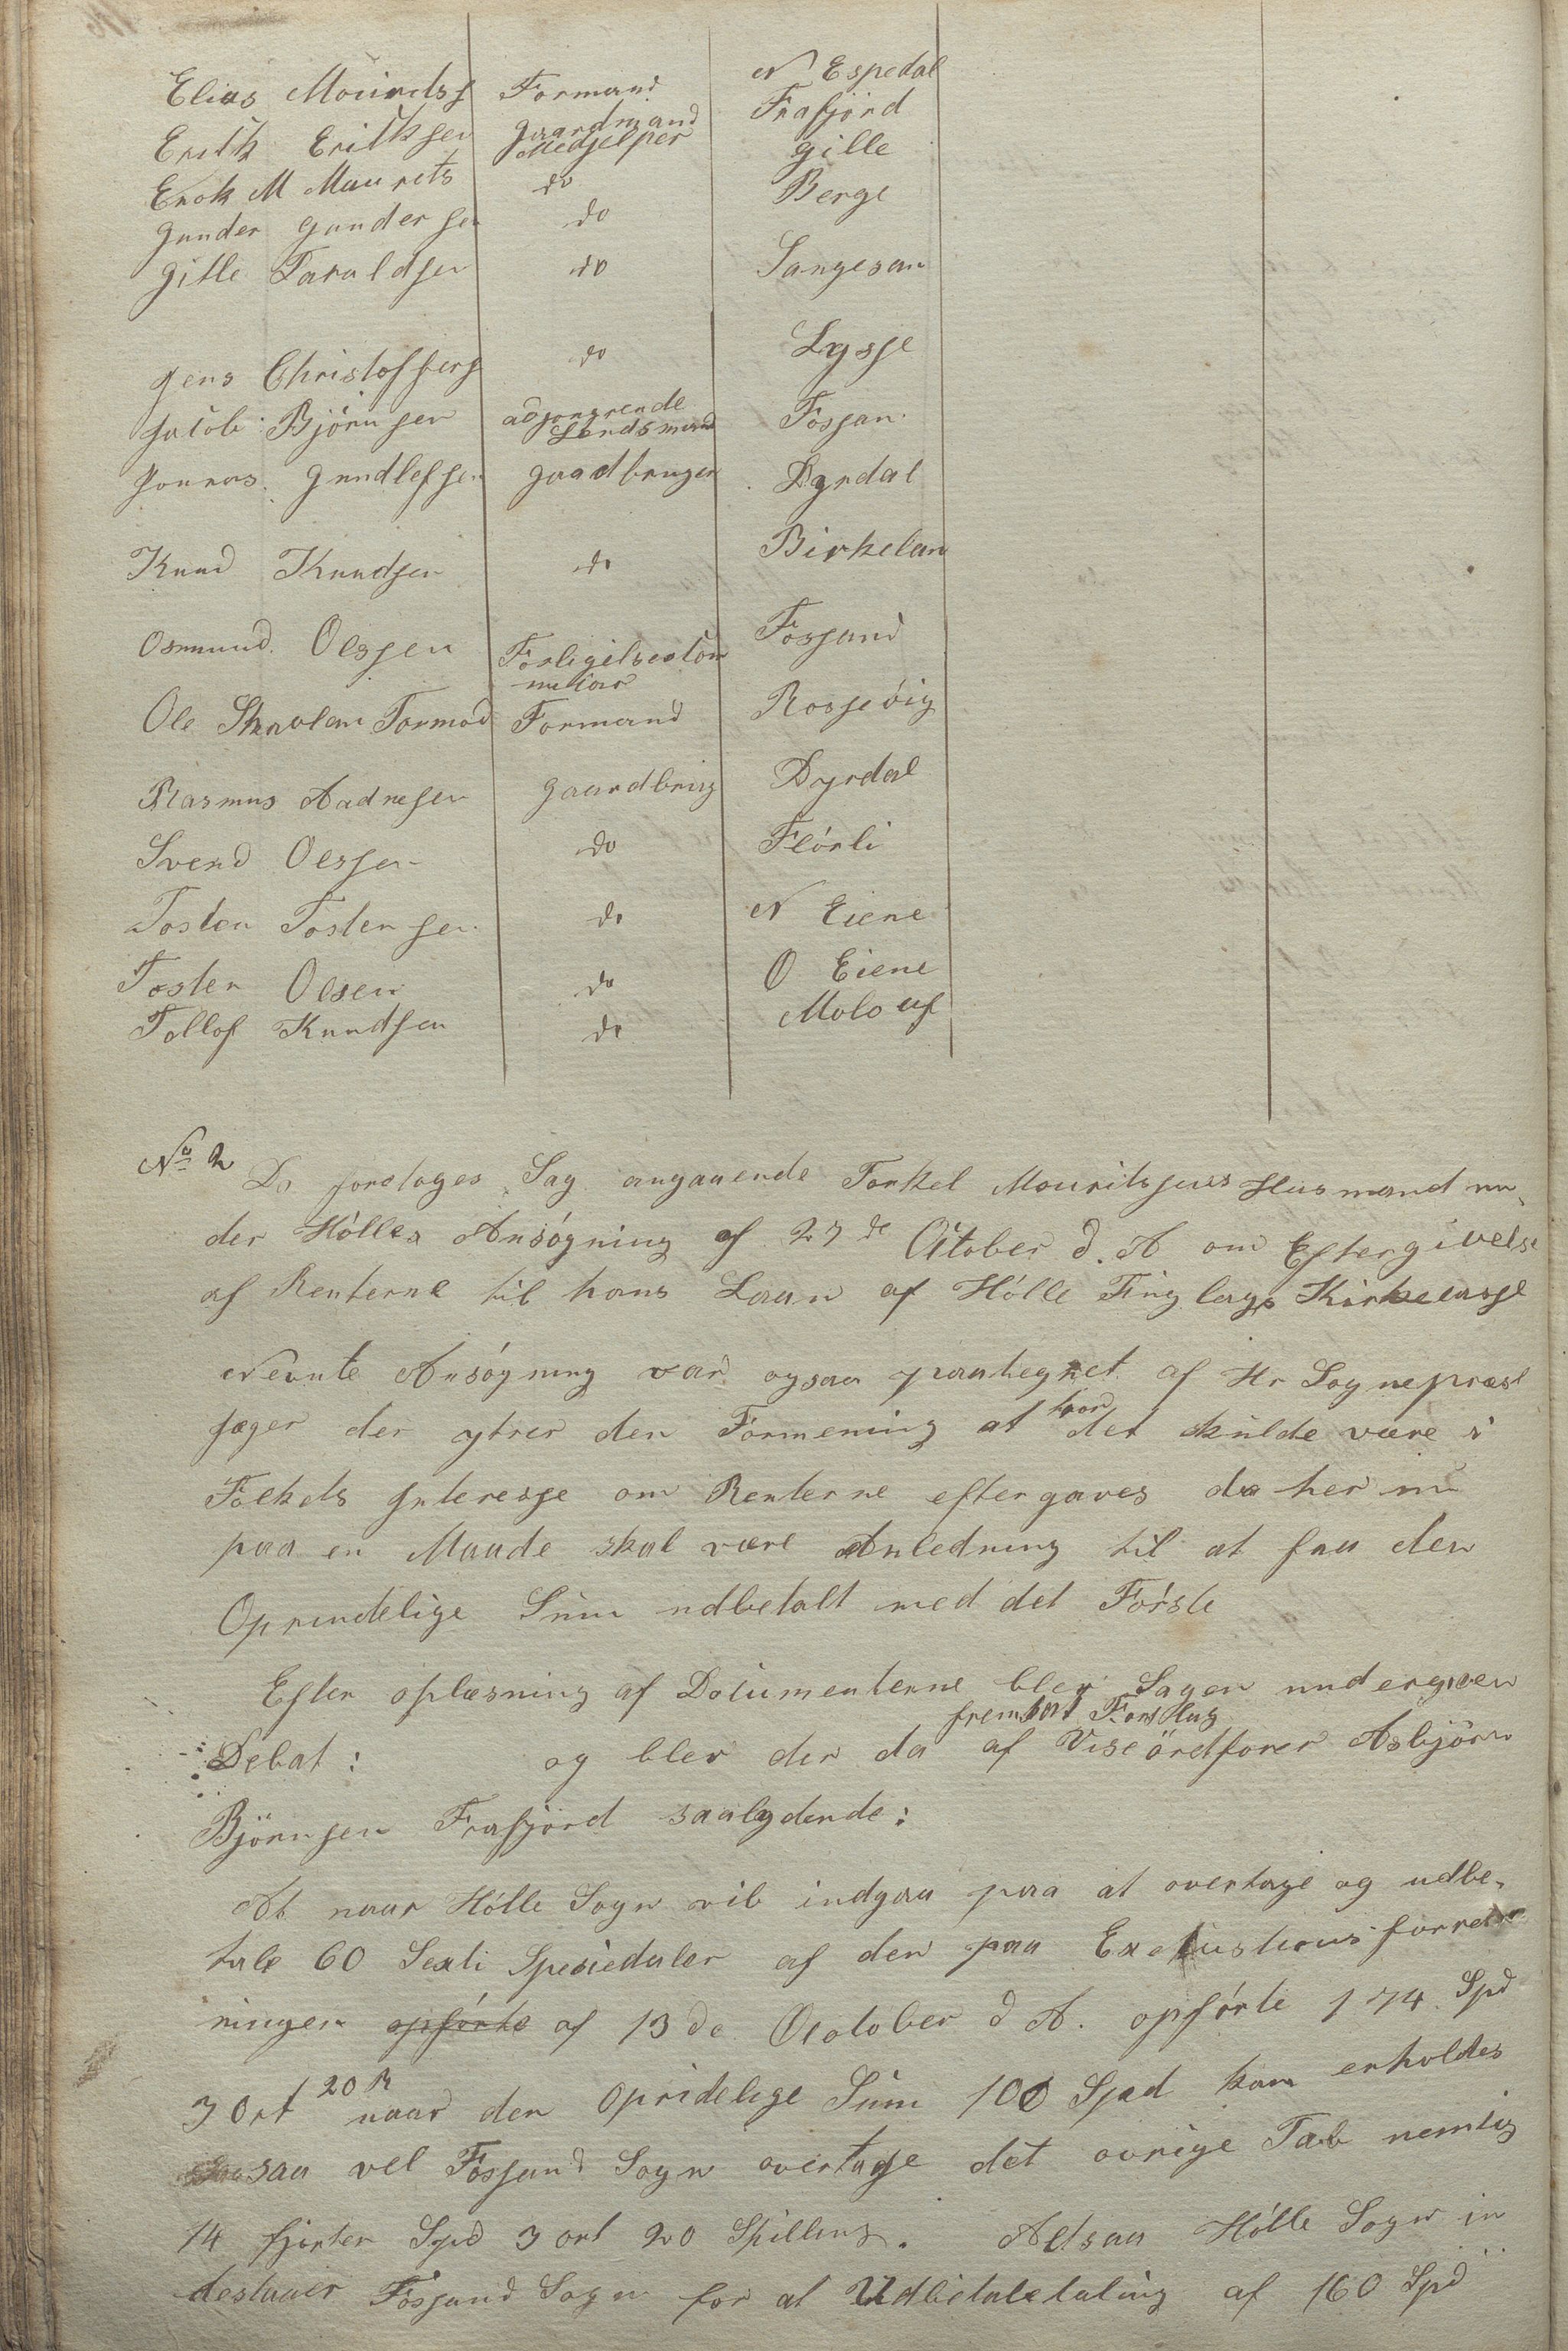 Elias Mouridss Formand N Espedal
Erik Eriksen Gaardmand Medjelper Frafjord
Enok M Maurits do Gille
Gunder Gundersen do Berge
Gitle Taraldsen do Sangesan
Jens Christoffers do Lysse
Jacob Bjørnsen adjongrende Lendsmand Fossan
Jonnas Gundlefsen gaadbruger Dyrdal
Knud Knudsen do Birkelan
Osmund Olssen Forligelseskom missar Fossand
Ole Skavlan Tormod Formand Rossevig
Rasmus Aadnesen gaardbrug Dyrdal
Svend Olssen do Flórli
Tosten Tostensen do N Eiene
Tosten Olsen do O Eiene
Tollof Knudsen do Molouf
No 2 Do foretoges Sag angaaende Torkel Mouritsens Husmand un-
der Hólles Ansógning af 27de October d. A om Eftergivelse
af Renterne til hans Laan af Hólle Tinglags Kirkecasse
Nevnte Ansógning var ogsaa paategnet af Hr Sognepræst
Jæger der ytrer den Formening at hvor det skulde være i
Folkets Interesse om Renterne eftergaves da her nu
paa en Maade skal være Anledning til at faa den
Oprindelige Sum udbetalt med det Fórste
Efter oplæsning af Documenterne blev Sagen undergiven
Debat: og blev der da fremsat Forslag af Viseordforer Asbjörn
Björnsen Frafjord saalydende:
At naar Hólle Sogn vil indgaa paa at overtage og udbe-
tale 60 Sexti Spesiedaler af den paa Exekustionsforret
ningen opfórte af 13de October d A. opfórte 174 Spd
3 Ort 20 s naar den Opridelige Sum 100 Spd kan erholdes
saa vel Fossand Sogn overtage det ovrige Tab nemlig
14 fjorten Spd 3 ort 20 Skilling. Altsaa Hólle Sogn in
destaaer Fossand Sogn for at Udbetaletaling af 160 Spd